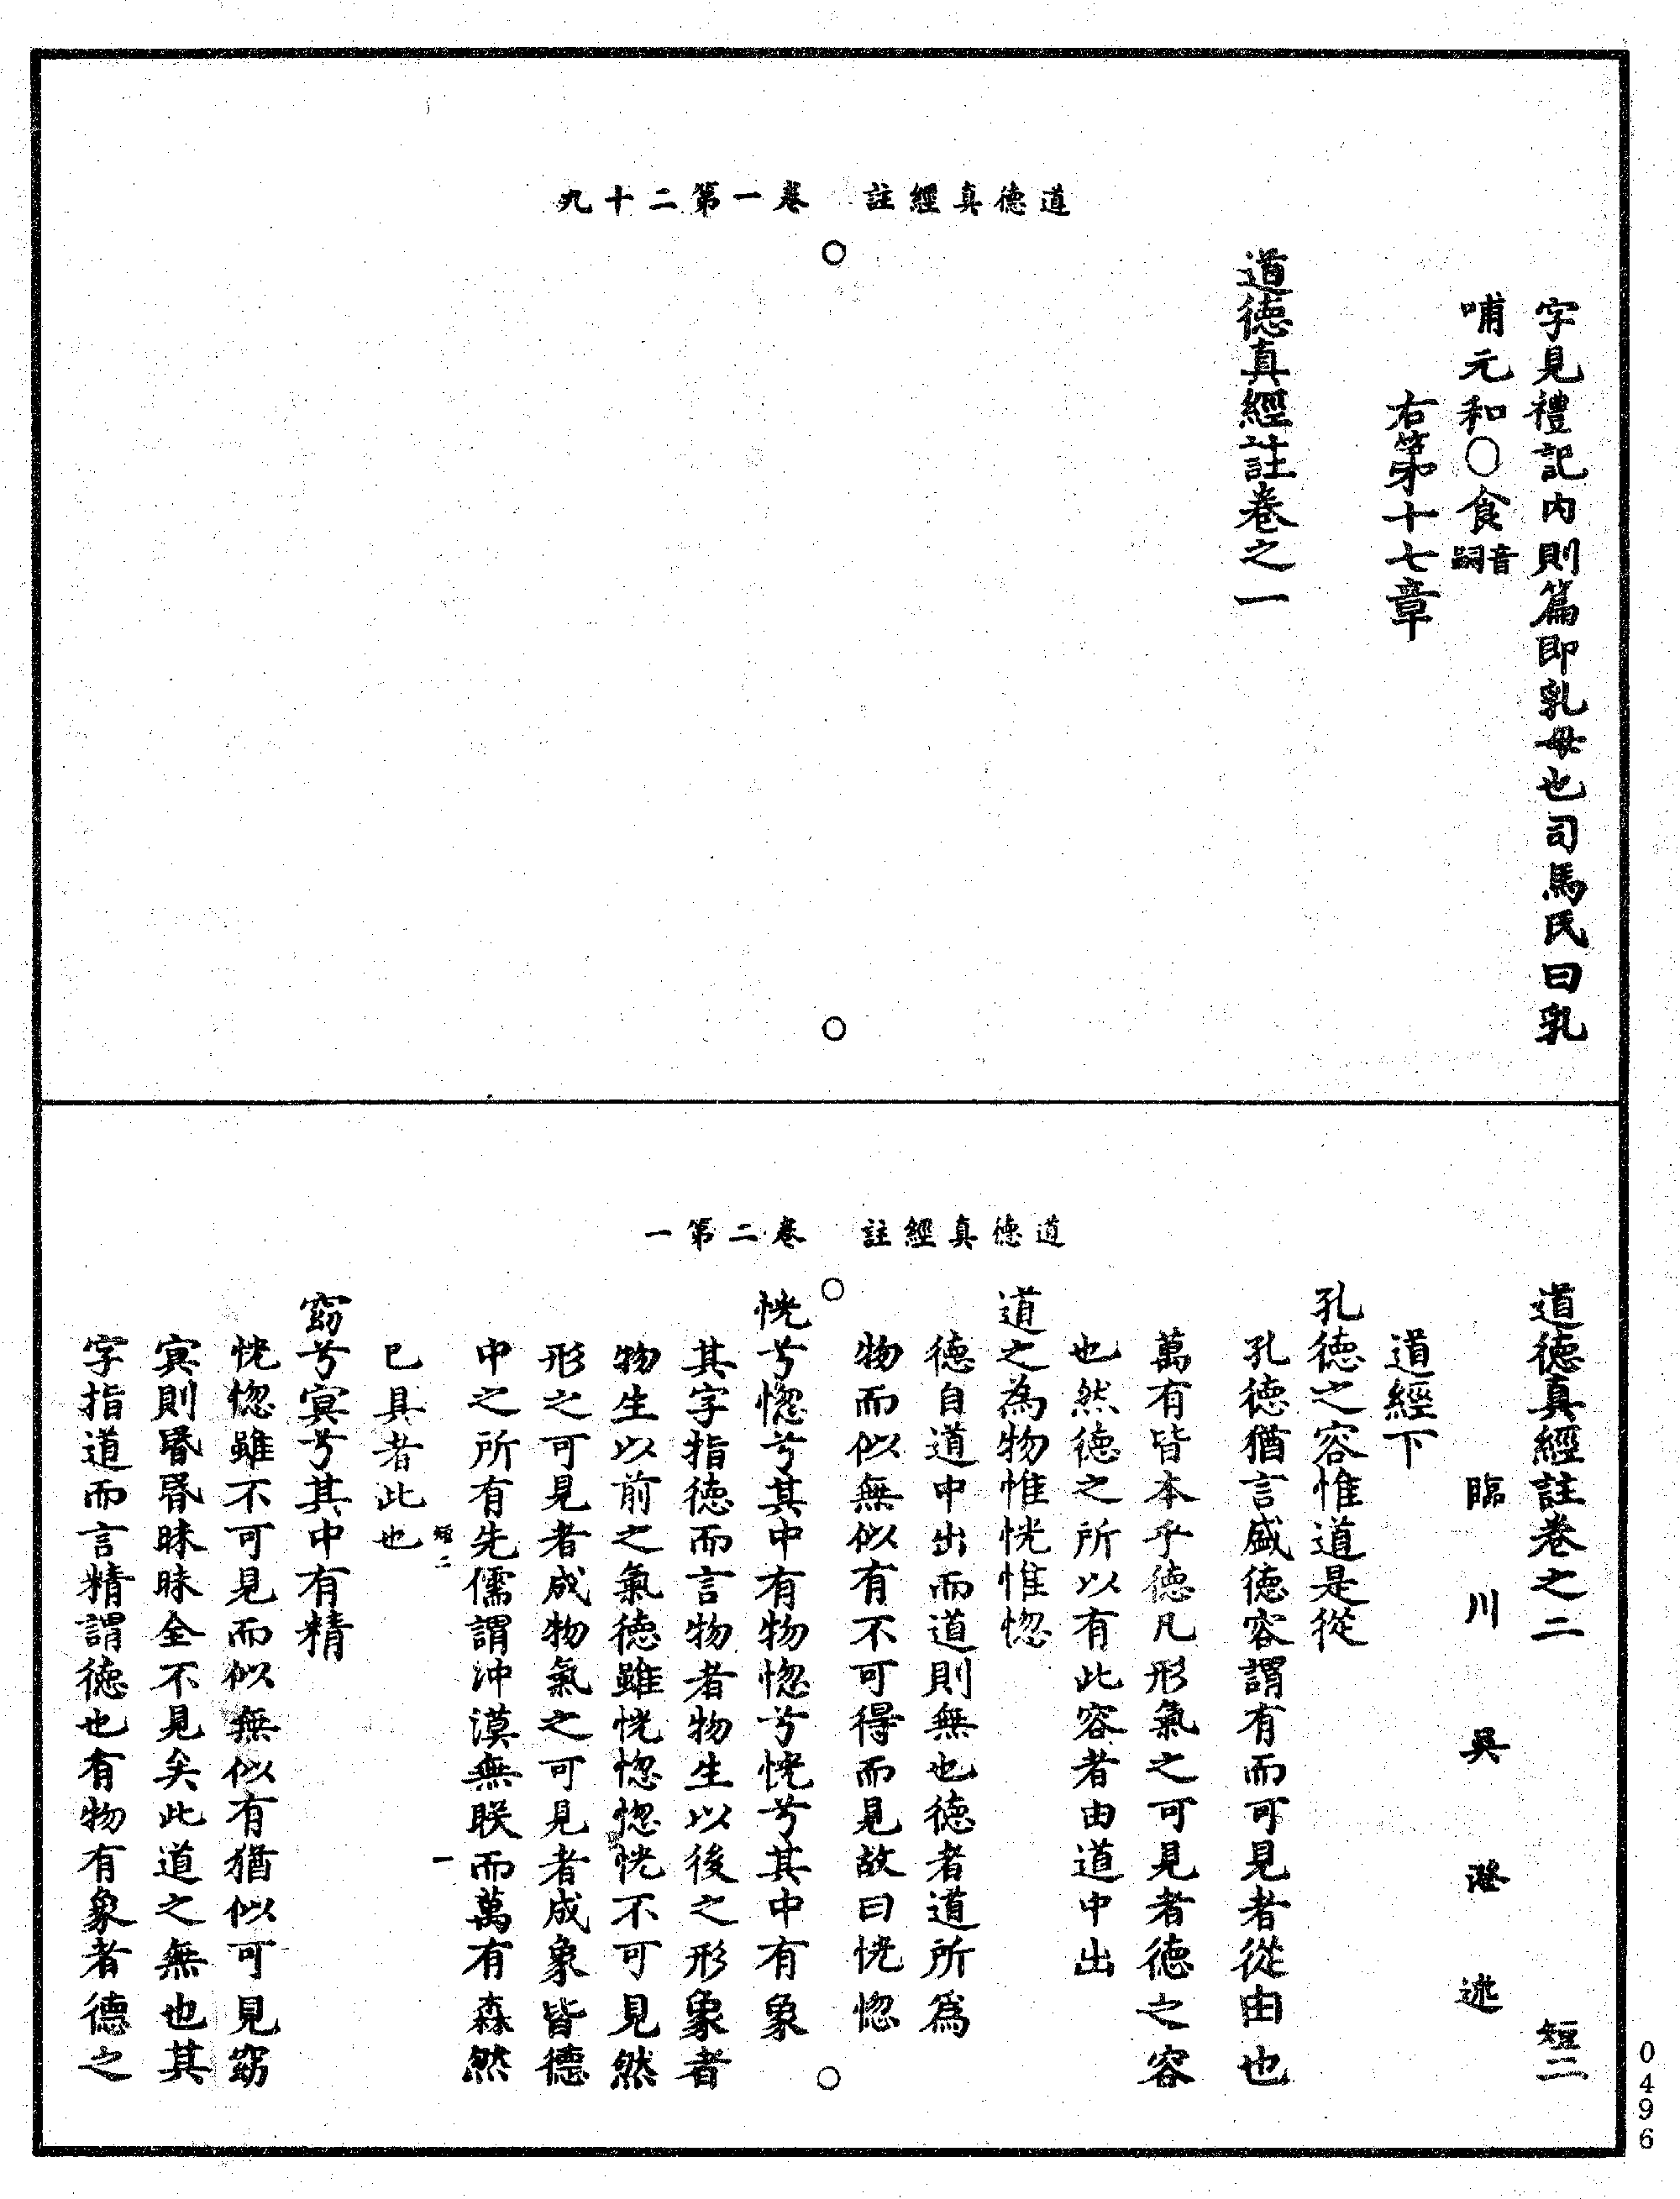 道德真經註　卷一第二十九
字見禮記內則篇即乳母也司馬氏曰乳
哺元和○食音嗣
右第十七章
道德真經註卷之一
道德真經註　卷二第一
道德真經註卷之二　短二
臨川吳澄述
道經下
孔德之容惟道是從
孔德猶言盛德容謂有而可見者從由也
萬有皆本乎德凡形氣之可見者德之容
也然德之所以有此容者由道中出
道之為物惟恍惟惚
德自道中出而道則無也德者道所為
物而似無似有不可得而見故曰恍惚
恍兮惚兮其中有物惚兮恍兮其中有象
其字指德而言物者物生以後之形象者
物生以前之氣德雖恍惚惚恍不可見然
形之可見者成物氣之可見者成象皆德
中之所有先儒謂沖漠無朕而萬有森然
短二　一
已具者此也
窈兮冥兮其中有精
恍惚雖不可見而似無似有猶似可見窈
冥則昏昏昧昧全不見矣此道之無也其
字指道而言精謂德也有物有象者德之
0496